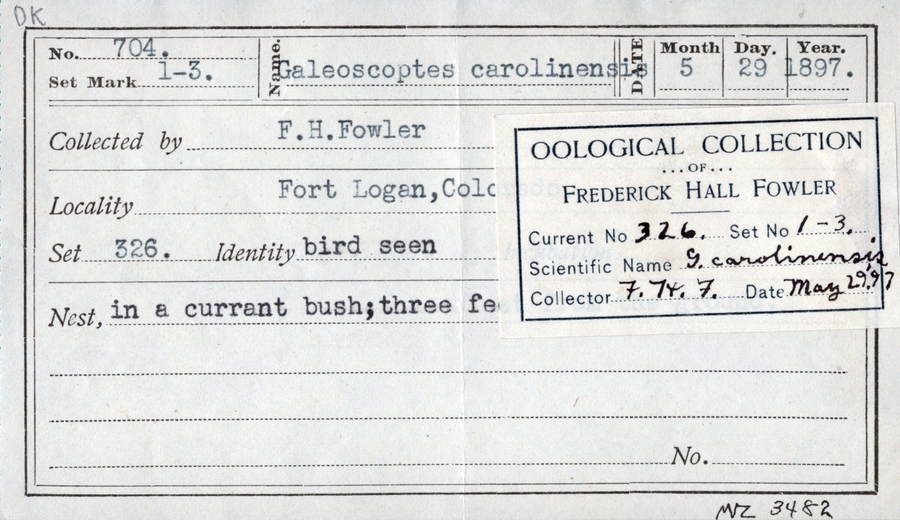 DK
No. 704.
Set Mark 1-3.
Name. Galeoscoptes carolinensis
DATE Month Day. Year.
5 29 1897.
Collected by F.H.Fowler
Locality Fort Logan,Colorado
Set 326. Identity bird seen
Nest, in a currant bush;three feet from the ground.
No.
OOLOGICAL COLLECTION
...OF...
FREDERICK HALL FOWLER
Current No 326. Set No 1-3.
Scientific Name G. carolinensis
Collector F. H. F. Date May 29, 97
MVZ 3482